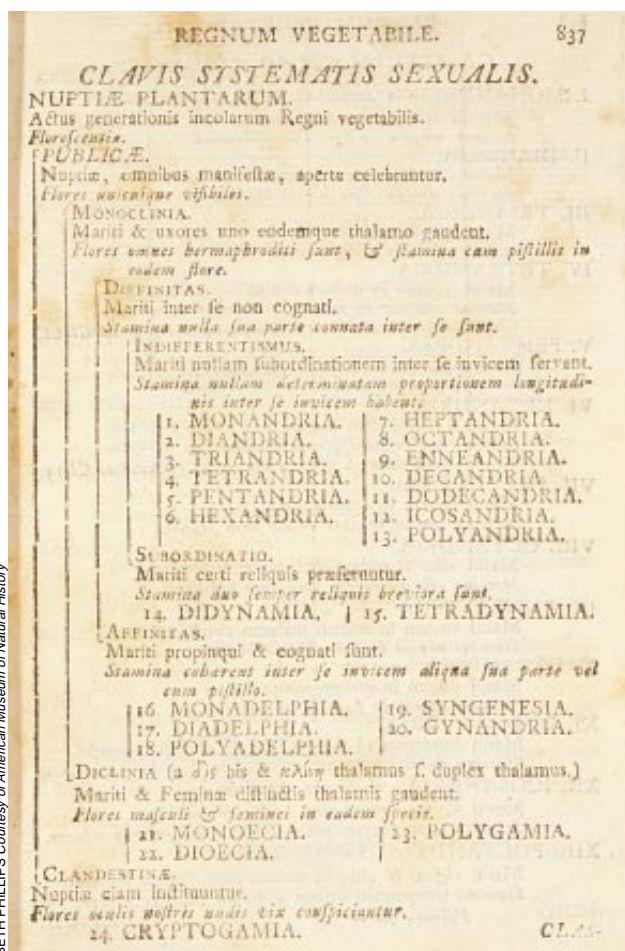 REGNUM VEGETABILE. 837
CLAVIS SYSTEMATIS SEXUALIS.
NUPTIÆ PLANTARUM.
Actus generationis incolarum Regni vegetabilis.
Florescentia.
PUBLICÆ.
Nuptiæ, omnibus manifestæ, aperte celebrantur.
Flores unicuique visibiles.
MONOCLINIA.
Mariti & uxores uno eodemque thalamo gaudent.
Flores omnes hermaphroditi sunt, & stamina cum pistillis in
eodem flore.
DIFFINITAS.
Mariti inter se non cognati.
Stamina nulla sua parte connata inter se sunt.
INDIFFERENTISMUS.
Mariti nullam subordinationem inter se invicem servant.
Stamina nullam determinatam proportionem longitudi-
nis inter se invicem habent.
1. MONANDRIA. 7. HEPTANDRIA.
2. DIANDRIA. 8. OCTANDRIA.
3. TRIANDRIA. 9. ENNEANDRIA.
4. TETRANDRIA. 10. DECANDRIA
5. PENTANDRIA. 11. DODECANDRIA.
6. HEXANDRIA. 12. ICOSANDRIA.
13. POLYANDRIA.
SUBORDINATIO.
Mariti certi reliquis præferuntur.
Stamina duo semper reliquis breviora sunt.
14. DIDYNAMIA. 15. TETRADYNAMIA.
AFFINITAS.
Mariti propinqui & cognati sunt.
Stamina cohærent inter se invicem aliqua sua parte vel
cum pistillo.
16. MONADELPHIA. 19. SYNGENESIA.
17. DIADELPHIA. 20. GYNANDRIA.
18. POLYADELPHIA.
DICLINIA (a δὶς bis & κλίνη thalamus s. duplex thalamus.)
Mariti & Feminæ distinctis thalamis gaudent.
Flores masculi & feminei in eadem specie.
21. MONOECIA. 23. POLYGAMIA.
22. DIOECIA.
CLANDESTINÆ.
Nuptiæ clam instituuntur.
Flores oculis nostris nudis vix conspiciuntur.
24. CRYPTOGAMIA. CLAS-
PHILLIPS Courtesy of American Museum of Natural History